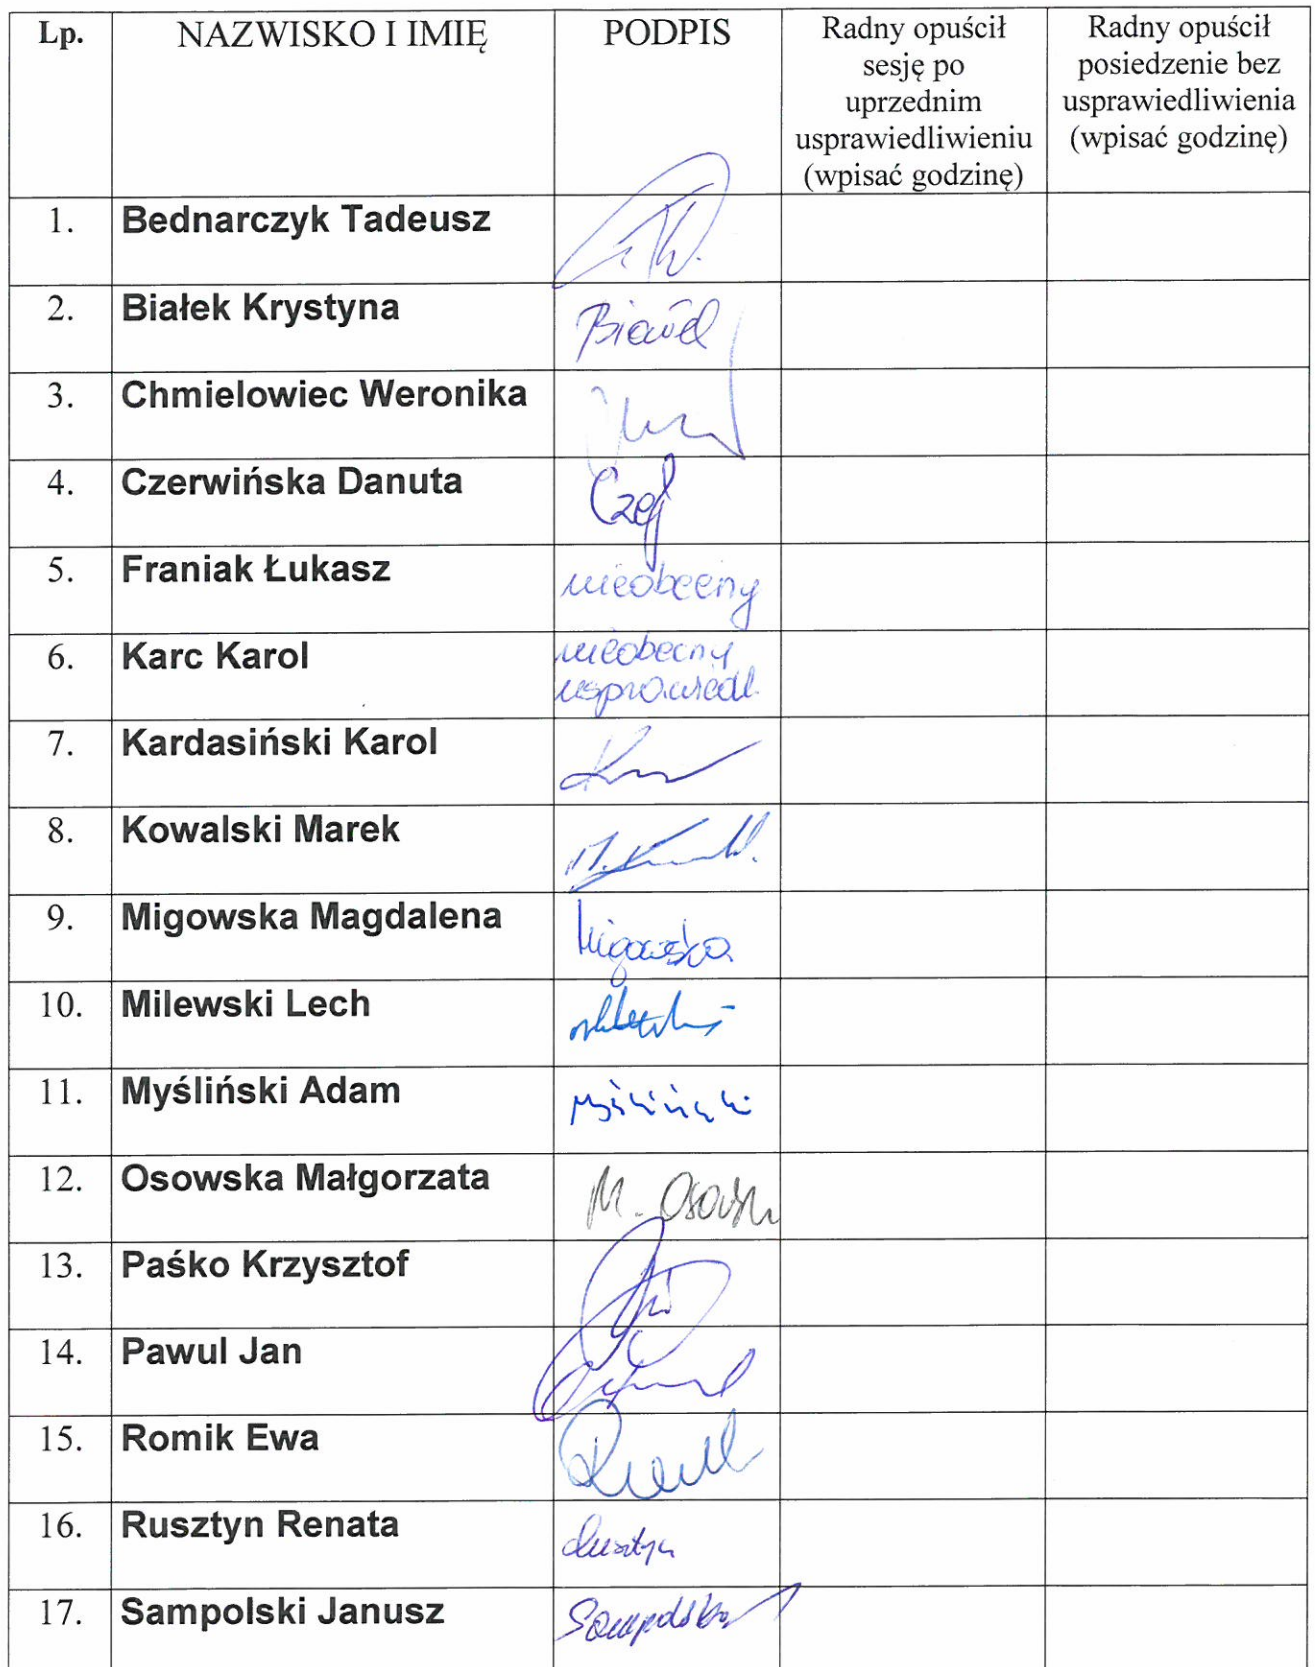 Lp. NAZWISKO I IMIĘ PODPIS Radny opuścił sesję po uprzednim usprawiedliwieniu (wpisać godzinę) Radny opuścił posiedzenie bez usprawiedliwienia (wpisać godzinę)
1. Bednarczyk Tadeusz
2. Białek Krystyna
3. Chmielowiec Weronika
4. Czerwińska Danuta
5. Franiak Łukasz nieobecny
6. Karc Karol nieobecny
usprawiedl.
7. Kardasiński Karol
8. Kowalski Marek
9. Migowska Magdalena Migowska
10. Milewski Lech
11. Myśliński Adam Myśliński
12. Osowska Małgorzata
13. Paśko Krzysztof
14. Pawul Jan
15. Romik Ewa
16. Rusztyn Renata
17. Sampolski Janusz